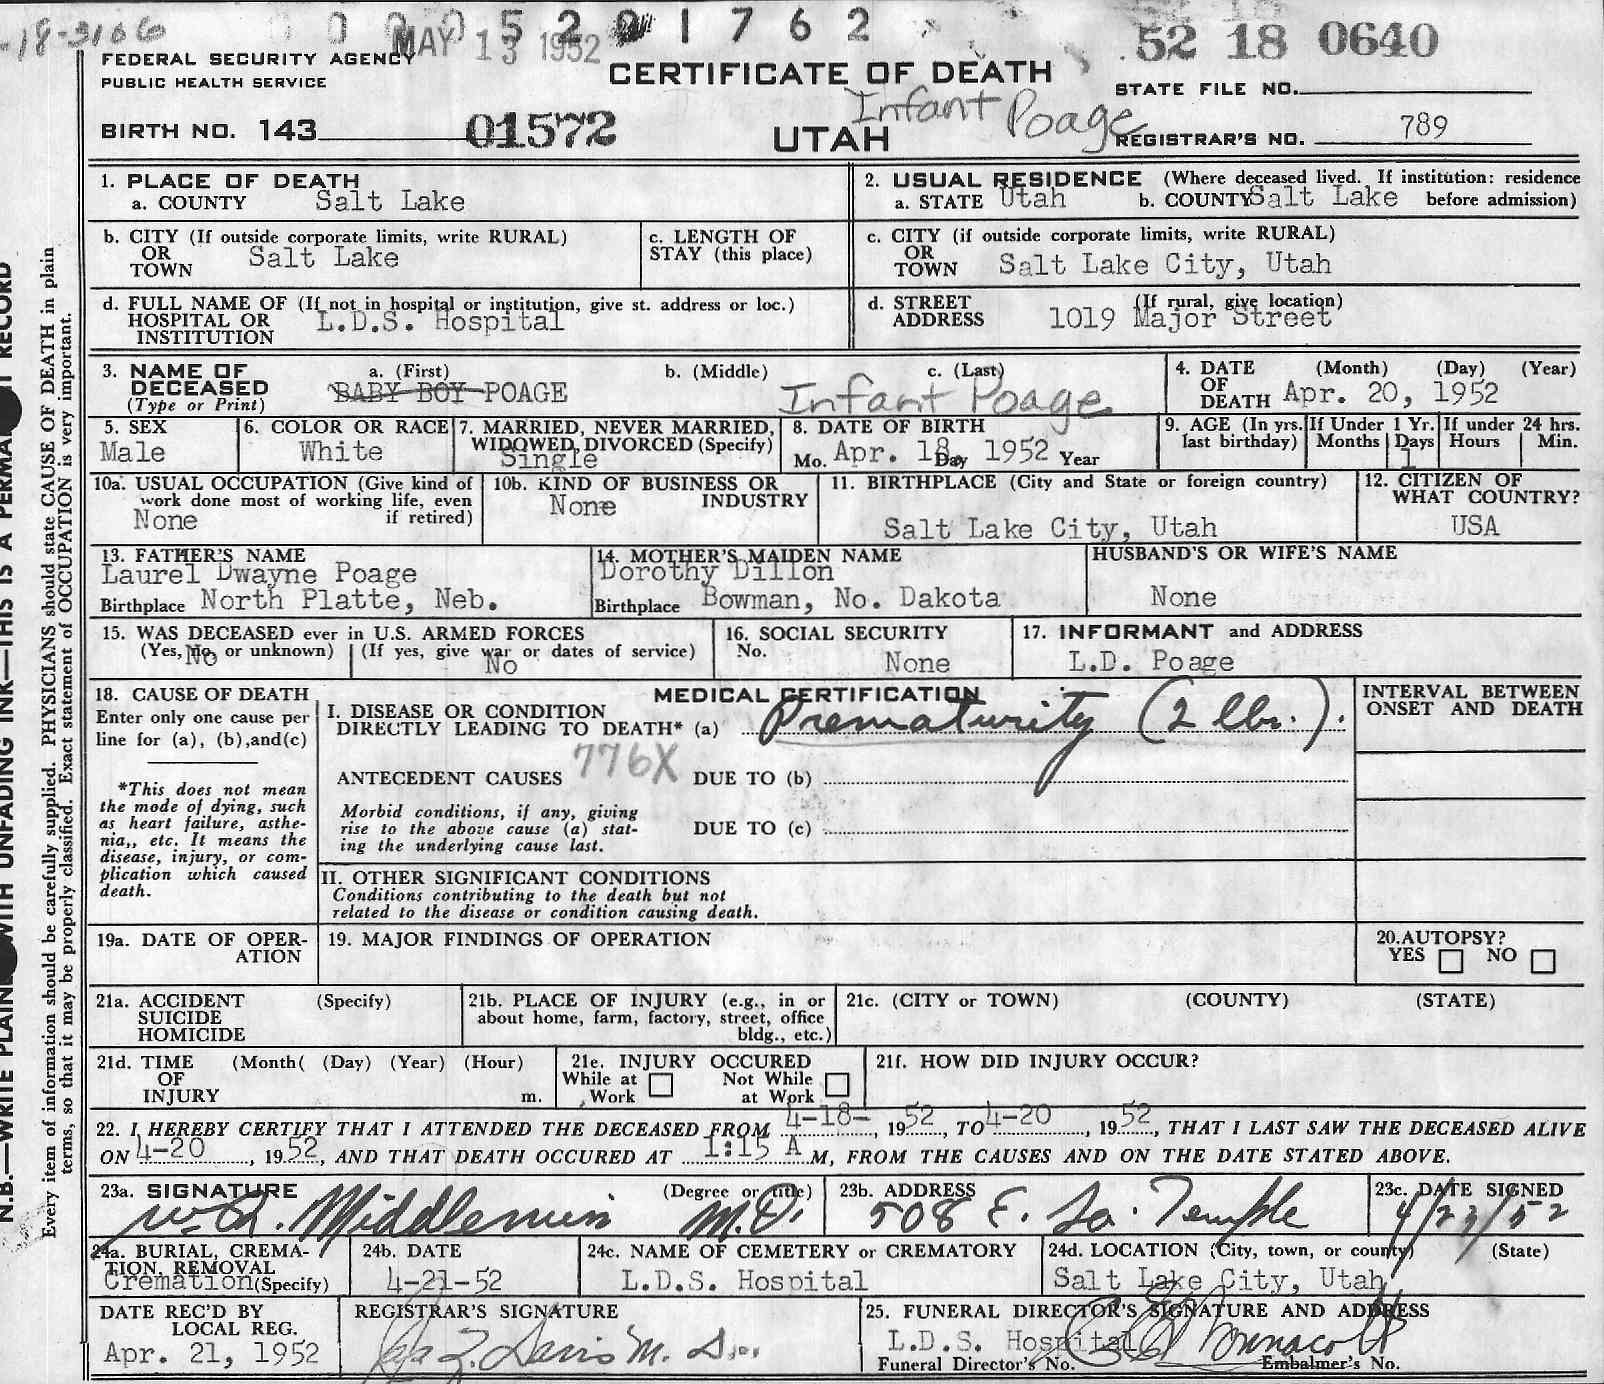 -18-3106
0 0 0 5 2 0 1 7 6 2
MAY 13 1952
52 18 0640
FEDERAL SECURITY AGENCY
PUBLIC HEALTH SERVICE
CERTIFICATE OF DEATH
STATE FILE NO.
Infant Poage
BIRTH NO. 143 01572
UTAH
REGISTRAR'S NO. 789
1. PLACE OF DEATH
a. COUNTY Salt Lake
2. USUAL RESIDENCE (Where deceased lived. If institution: residence
a. STATE Utah b. COUNTY Salt Lake before admission)
b. CITY (If outside corporate limits, write RURAL)
OR
TOWN Salt Lake
c. LENGTH OF
STAY (this place)
c. CITY (if outside corporate limits, write RURAL)
OR
TOWN Salt Lake City, Utah
d. FULL NAME OF (If not in hospital or institution, give st. address or loc.)
HOSPITAL OR
INSTITUTION L.D.S. Hospital
d. STREET
ADDRESS
(If rural, give location)
1019 Major Street
3. NAME OF
DECEASED
(Type or Print)
a. (First) b. (Middle) c. (Last)
BABY BOY POAGE Infant Poage
4. DATE
OF
DEATH
(Month) (Day) (Year)
Apr. 20, 1952
5. SEX
Male
6. COLOR OR RACE
White
7. MARRIED, NEVER MARRIED,
WIDOWED, DIVORCED (Specify)
Single
8. DATE OF BIRTH
Mo. Apr. 18, Day 1952 Year
9. AGE (In yrs.
last birthday)
If Under 1 Yr.
Months Days
1
If under 24 hrs.
Hours Min.
10a. USUAL OCCUPATION (Give kind of
work done most of working life, even
if retired)
None
10b. KIND OF BUSINESS OR
INDUSTRY
None
11. BIRTHPLACE (City and State or foreign country)
Salt Lake City, Utah
12. CITIZEN OF
WHAT COUNTRY?
USA
13. FATHER'S NAME
Laurel Dwayne Poage
Birthplace North Platte, Neb.
14. MOTHER'S MAIDEN NAME
Dorothy Dillon
Birthplace Bowman, No. Dakota
HUSBAND'S OR WIFE'S NAME
None
15. WAS DECEASED ever in U.S. ARMED FORCES
(Yes, No, or unknown) (If yes, give war or dates of service)
No No
16. SOCIAL SECURITY
No.
None
17. INFORMANT and ADDRESS
L.D. Poage
18. CAUSE OF DEATH
Enter only one cause per
line for (a), (b),and(c)
*This does not mean
the mode of dying, such
as heart failure, asthe-
nia,, etc. It means the
disease, injury, or com-
plication which caused
death.
MEDICAL CERTIFICATION
I. DISEASE OR CONDITION
DIRECTLY LEADING TO DEATH* (a) Prematurity (2 lbs.).
776X
ANTECEDENT CAUSES DUE TO (b)
Morbid conditions, if any, giving
rise to the above cause (a) stat-
ing the underlying cause last.
DUE TO (c)
II. OTHER SIGNIFICANT CONDITIONS
Conditions contributing to the death but not
related to the disease or condition causing death.
INTERVAL BETWEEN
ONSET AND DEATH
19a. DATE OF OPER-
ATION
19. MAJOR FINDINGS OF OPERATION
20.AUTOPSY?
YES NO
21a. ACCIDENT (Specify)
SUICIDE
HOMICIDE
21b. PLACE OF INJURY (e.g., in or
about home, farm, factory, street, office
bldg., etc.)
21c. (CITY or TOWN) (COUNTY) (STATE)
21d. TIME (Month( (Day) (Year) (Hour)
OF
INJURY m.
21e. INJURY OCCURED
While at Not While
Work at Work
21f. HOW DID INJURY OCCUR?
22. I HEREBY CERTIFY THAT I ATTENDED THE DECEASED FROM 4-18-, 1952, TO 4-20, 1952, THAT I LAST SAW THE DECEASED ALIVE
ON 4-20, 1952, AND THAT DEATH OCCURED AT 1:15 A M, FROM THE CAUSES AND ON THE DATE STATED ABOVE.
23a. SIGNATURE (Degree or title)
Middlemiss M.D.
23b. ADDRESS
508 E. So. Temple
23c. DATE SIGNED
4/23/52
24a. BURIAL, CREMA-
TION, REMOVAL
Cremation (Specify)
24b. DATE
4-21-52
24c. NAME OF CEMETERY or CREMATORY
L.D.S. Hospital
24d. LOCATION (City, town, or county) (State)
Salt Lake City, Utah
DATE REC'D BY
LOCAL REG.
Apr. 21, 1952
REGISTRAR'S SIGNATURE
25. FUNERAL DIRECTOR'S SIGNATURE AND ADDRESS
L.D.S. Hospital
Funeral Director's No. Embalmer's No.
N.B.—WRITE PLAINLY WITH UNFADING INK—THIS IS A PERMANENT RECORD
Every item of information should be carefully supplied. PHYSICIANS should state CAUSE OF DEATH in plain
terms, so that it may be properly classified. Exact statement of OCCUPATION is very important.